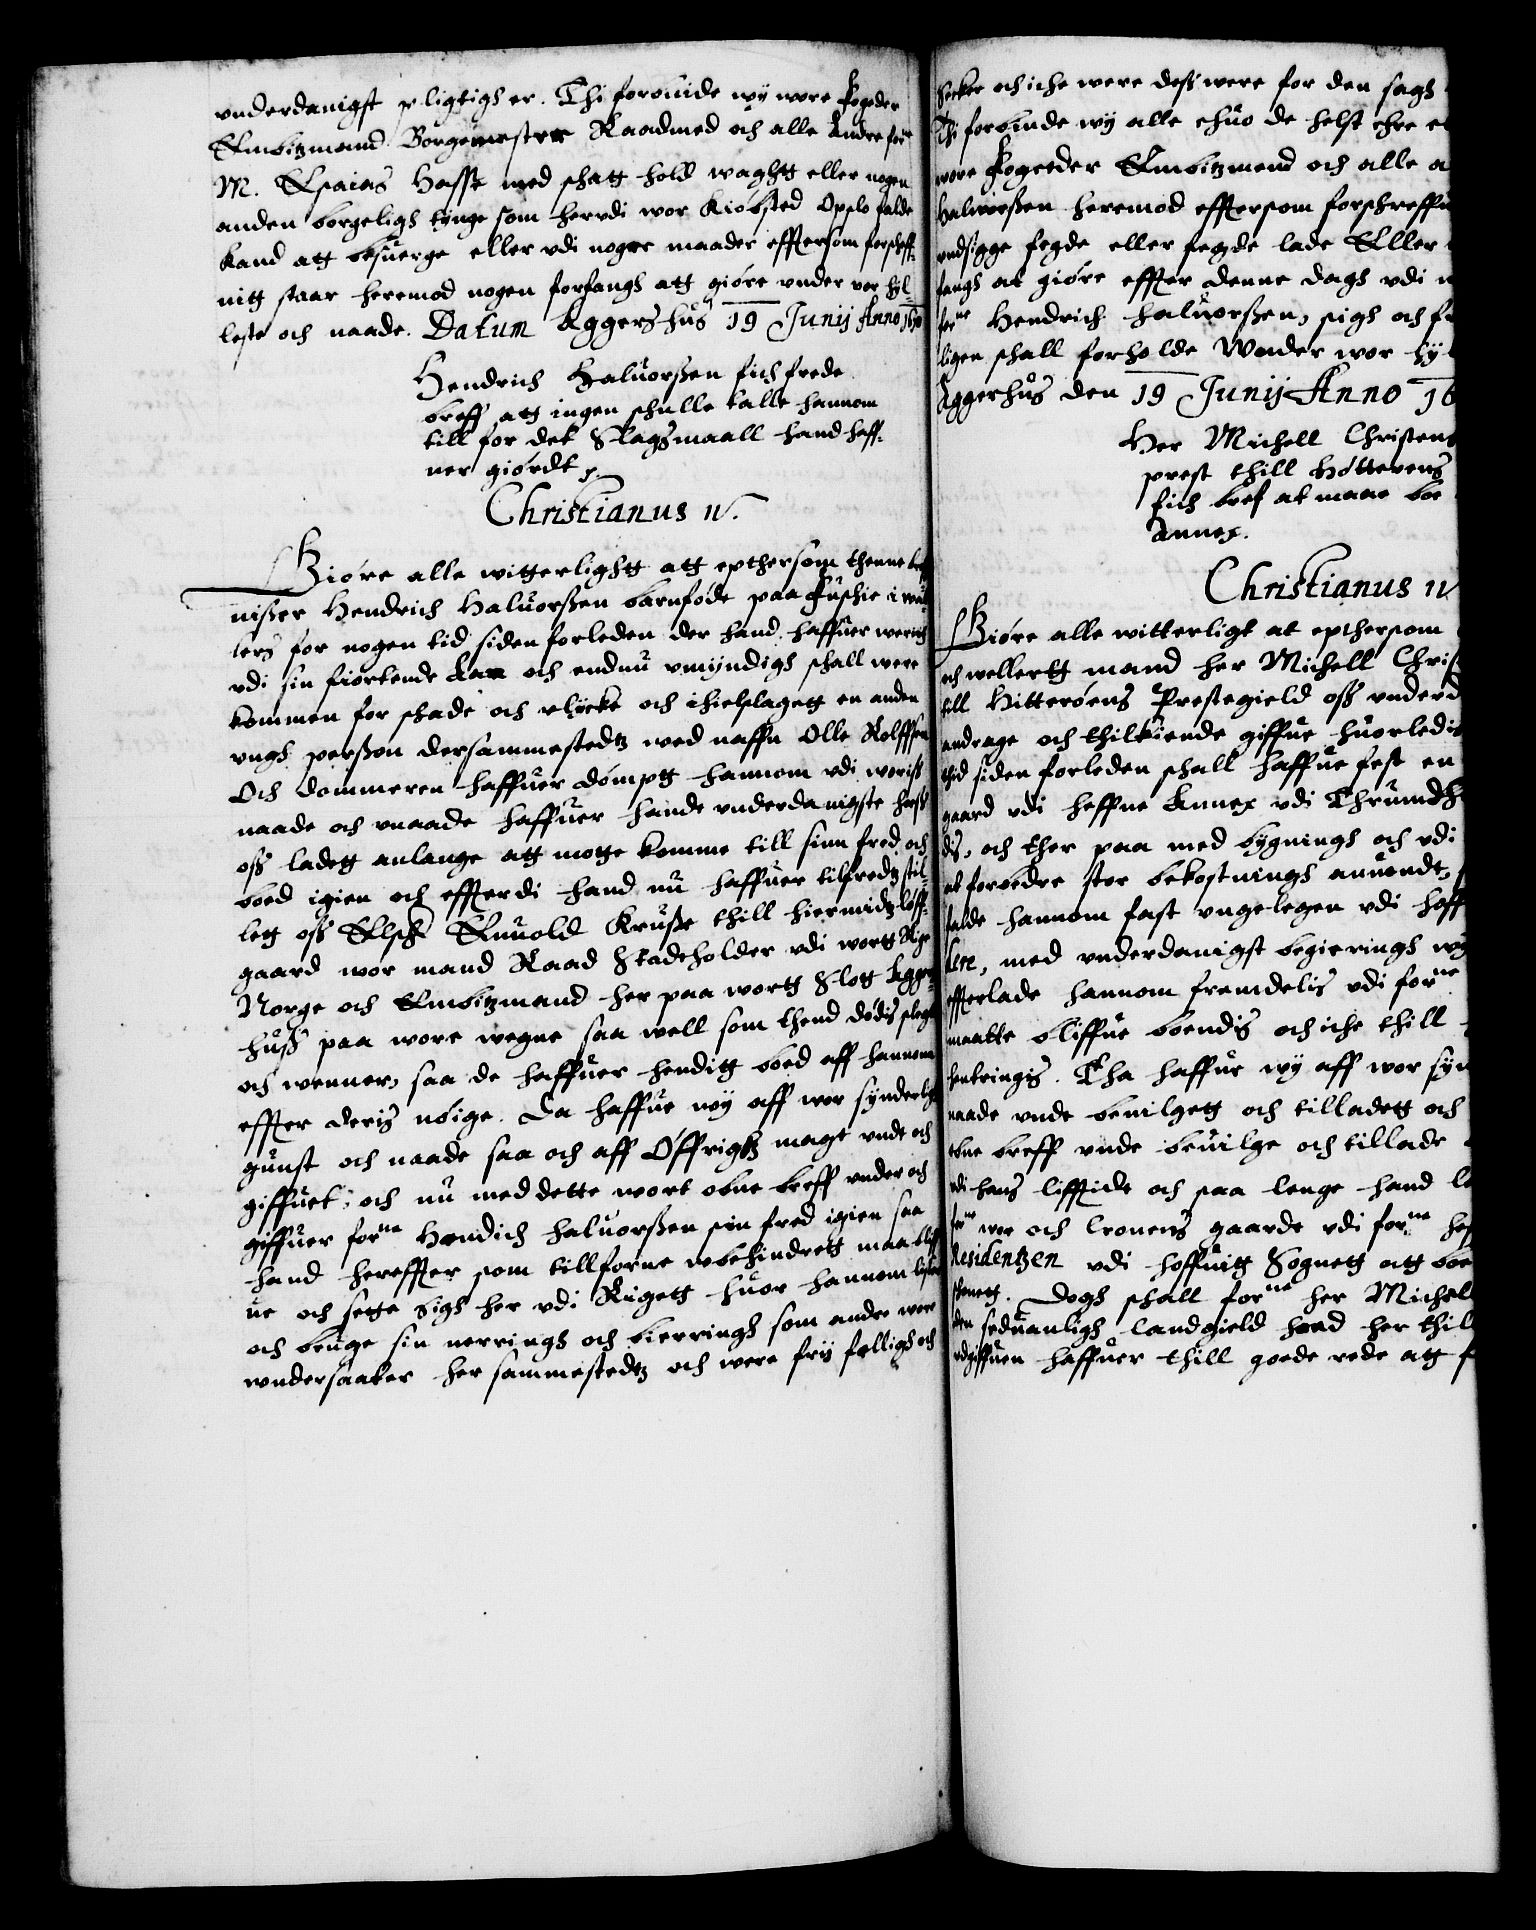 vnderdanigst pligtigh er. Thi forbiude wij wore fogeder
Embitzmand Borgemestere Raadmed och alle Andre for:ne
M. Esaias Hasse med schatt hold waghtt eller nogen
anden borgeligh tynge som herudi wor kiøbsted Opslo falde
kand att besuerge eller udi nogre maader effttersom forscheff-
nitt staar heremod nogen forfangh att giøre vnder vor hyl-
leste och naade. Datum Aggershus 19 Junij Anno
Hendrich Haluorßen fich frede
breff att ingen schulle talle hannom
till for det Slagsmaall hand haff-
uer giordt
Christianus 4.
Giøre alle witterlightt att epthersom thenne breff
uißer Hendrich Haluorßen barnføde paa
lers for nogen tid siden forleden der hand haffuer werit
vdi sin fiortende Aar och endnu vmyndigh schall were
kommen for schade och vlycke och ihielslagett en anden
ungh perßon dersammestedtz wed naffn Olle Rolffsen
Och dommeren haffuer dømptt hannom vdi woris
naade och vnaade haffuer hand vnderdanigste hoß
oß ladett anlange att motte komme till sinn fred och
boed igien och effterdi hand nu haffuer tilfredtz stil-
lett oß Elsch Enuold Kruße thill Hiermidtzløff-
gaard wor mand Raad Stadtholder vdi wortt Rige
Norge och Embitzmand her paa wortt Slott Agger-
huß paa wore wegne saa well som thend dødis slegt
och wenner, saa de haffuer hendtt boed aff hannom
effter deris nøige. Da haffue wij aff wor synderlig
gunst och naade saa och aff Øffrighs magt vnt och
giffuet, och nu med dette wort obne breff vnder och
giffuer for:ne Hendich Haluorßen sin fred igien saa
hand hereffter som tillforne wbehindrett maa bliff-
ue och sette sigh her vdi Rigett huor hannom lyster
och bruge sin nerringh och bierringh som andre wore
wndersaater her sammestedtz och were frij felligh och
secker och iche were deß were for den sagh
Thi forbiude wij alle ehuo de helst ehre e
wore fogeder Embitzmend och alle a
Haluorßen heremod efftersom forschreffu
vndsigge fegde eller fegde lade Eller
fangh at giøre effter denne dagh vdi n
for:ne Hendrich Haluorßen, sigh och fr
ligen schall forholde Wnder wor hyl
Aggerhus den 19 Junij Anno 16
Her Michell Christens
prest thill Hitterens
fich bref at maae boe
Annex.
Christianus 4
Giøre alle witterligt at epthersom
och wellertt mand her Michell Chris
till Hitterøens Prestegield oß vnderd
andrage och thilkiende giffue huorledis
thid siden forleden schall haffue fest en
gaard vdi Heffne Annex vdi Thrundh
dis, och ther paa med bygningh och vdi
at forbedre stor bekostningh anuendt,
falde hannom fast vngelegen vdi haff
lere, med vnderdanigst begieringh wij
effterlade hannom fremdelis vdi for:ne
maatte bliffue boendis och iche thill
hentringis. Tha haffue wij aff wor syn
naade vnde beuilgett och tilladett och
obne breff vnde beuilge och tillade
vdi hans liffttide och saa lenge hand le
for:ne wor och Cronens gaarde vdi for:ne Hef
Residentzen vdi hoffuitt Sognett att boe
thenett. Dogh schall for:ne her Michell
den seduanligh landgield huad her thil
vdgiffuen haffuer thill goede rede att f